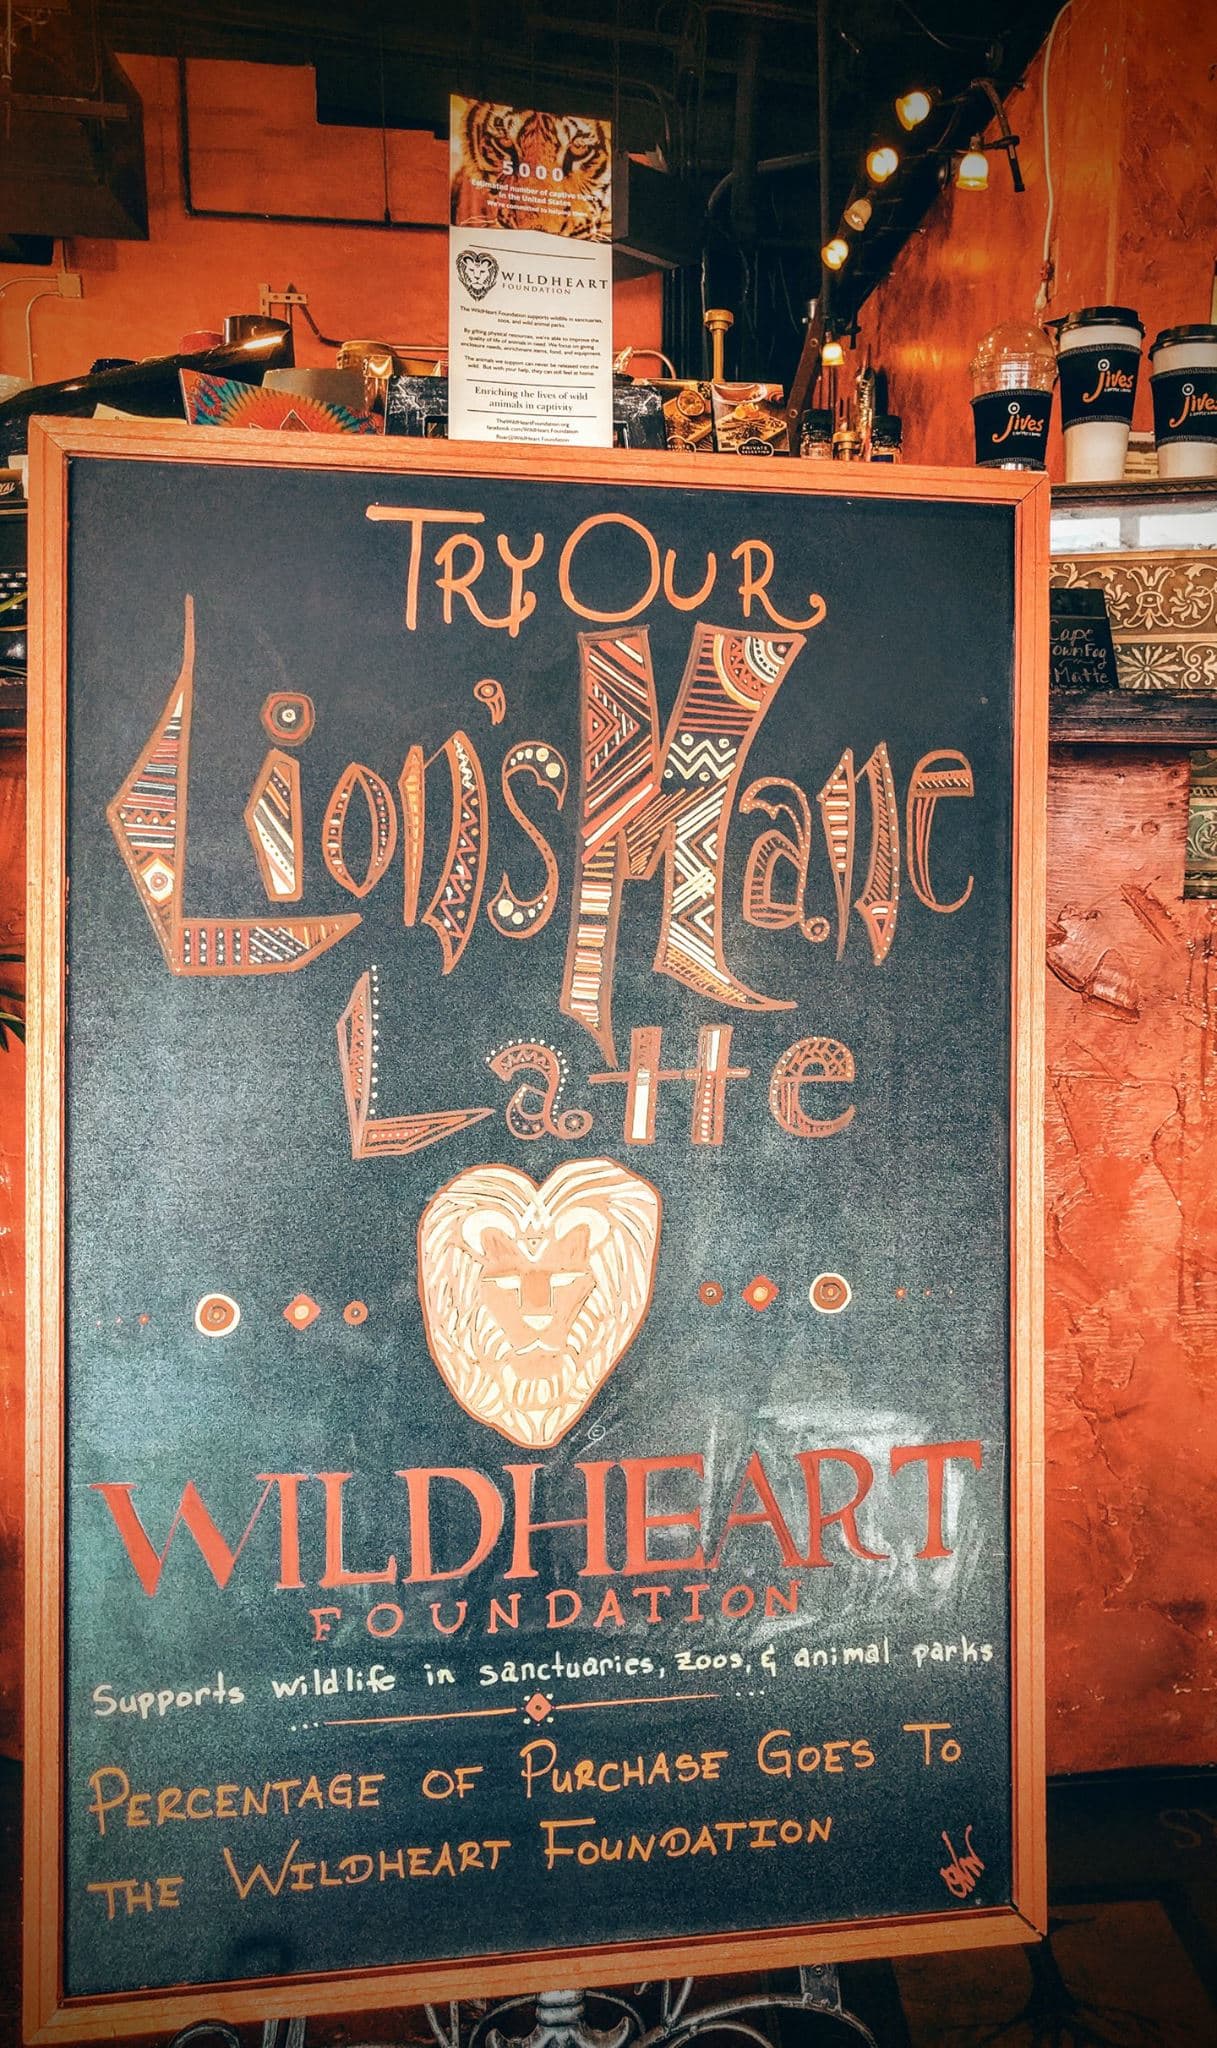 5000
Estimated number of captive tigers
in the United States
We're committed to helping them
WILDHEART
FOUNDATION
The WildHeart Foundation supports wildlife in sanctuaries,
zoos, and wild animal parks.
By gifting physical resources, we're able to improve the
quality of life of animals in need. We focus on giving
enclosure needs, enrichment items, food, and equipment.
The animals we support can never be released into the
wild. But with your help, they can still feel at home.
Enriching the lives of wild
animals in captivity
TheWildHeartFoundation.org
facebook.com/WildHeart Foundation
Roar@WildHeart.Foundation
PRIVATE
SELECTION
Jives
Jives
Jives
TRY OUR
Lion's Mane
Latte
Cape
own Fog
Matte
©
WILDHEART
FOUNDATION
Supports wildlife in sanctuaries, zoos, & animal parks
PERCENTAGE OF PURCHASE GOES TO
THE WILDHEART FOUNDATION